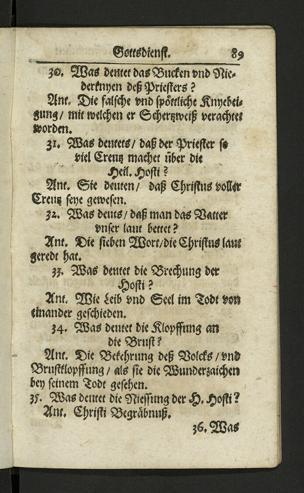 Gottsdienst. 89
30. Was deutet das Bucken vnd Nie-
derknyen deß Priesters?
Ant. Die falsche vnd spöttliche Knyebei-
gung / mit welchen er Schertzweiß verachtet
worden.
31. Was deutets / daß der Priester so
viel Creutz machet über die
Heil. Hosti?
Ant. Sie deuten / daß Christus voller
Creutz seye gewesen.
32. Was deuts / daß man das Vatter
vnser laut bettet?
Ant. Die sieben Wort / die Christus laut
geredt hat.
33. Was deutet die Brechung der
Hosti?
Ant. Wie Leib vnd Seel im Todt von
einander geschieden.
34. Was deutet die Klopffung an
die Brust?
Ant. Die Bekehrung deß Volcks / vnd
Brustklopffung / als sie die Wunderzaichen
bey seinem Todt gesehen.
35. Was deutet die Niessung der H. Hosti?
Ant. Christi Begräbnuß.
36. Was